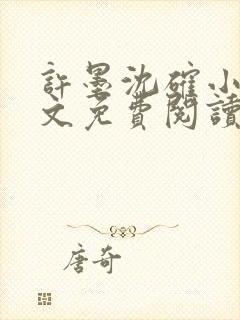 許墨沈確小
文免費閱讀
唐奇